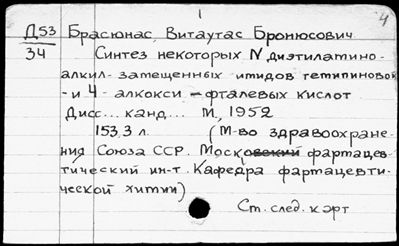 1
4
Д53 Брасюнас, Витаутас Бронюсович
34 Синтез некоторых N диэтиламино-
алкил- замещенных имидов гемипиновой
- и 4 - алкокси - фталевых кислот
Дисс... канд... М., 1952
153,3 л. (М-во здравоохране-
ния Союза ССР. Московский фармацев
тический ин-т. Кафедра фармацевти-
ческой химии)
Ст. след. карт